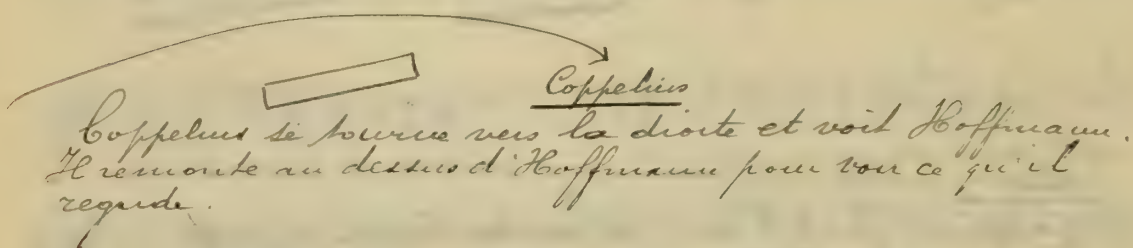 Coppelius
Coppelius se tourne vers la droite et voit Hoffmann.
Il remonte au dessus d'Hoffmann pour voir ce qu'il
regarde.